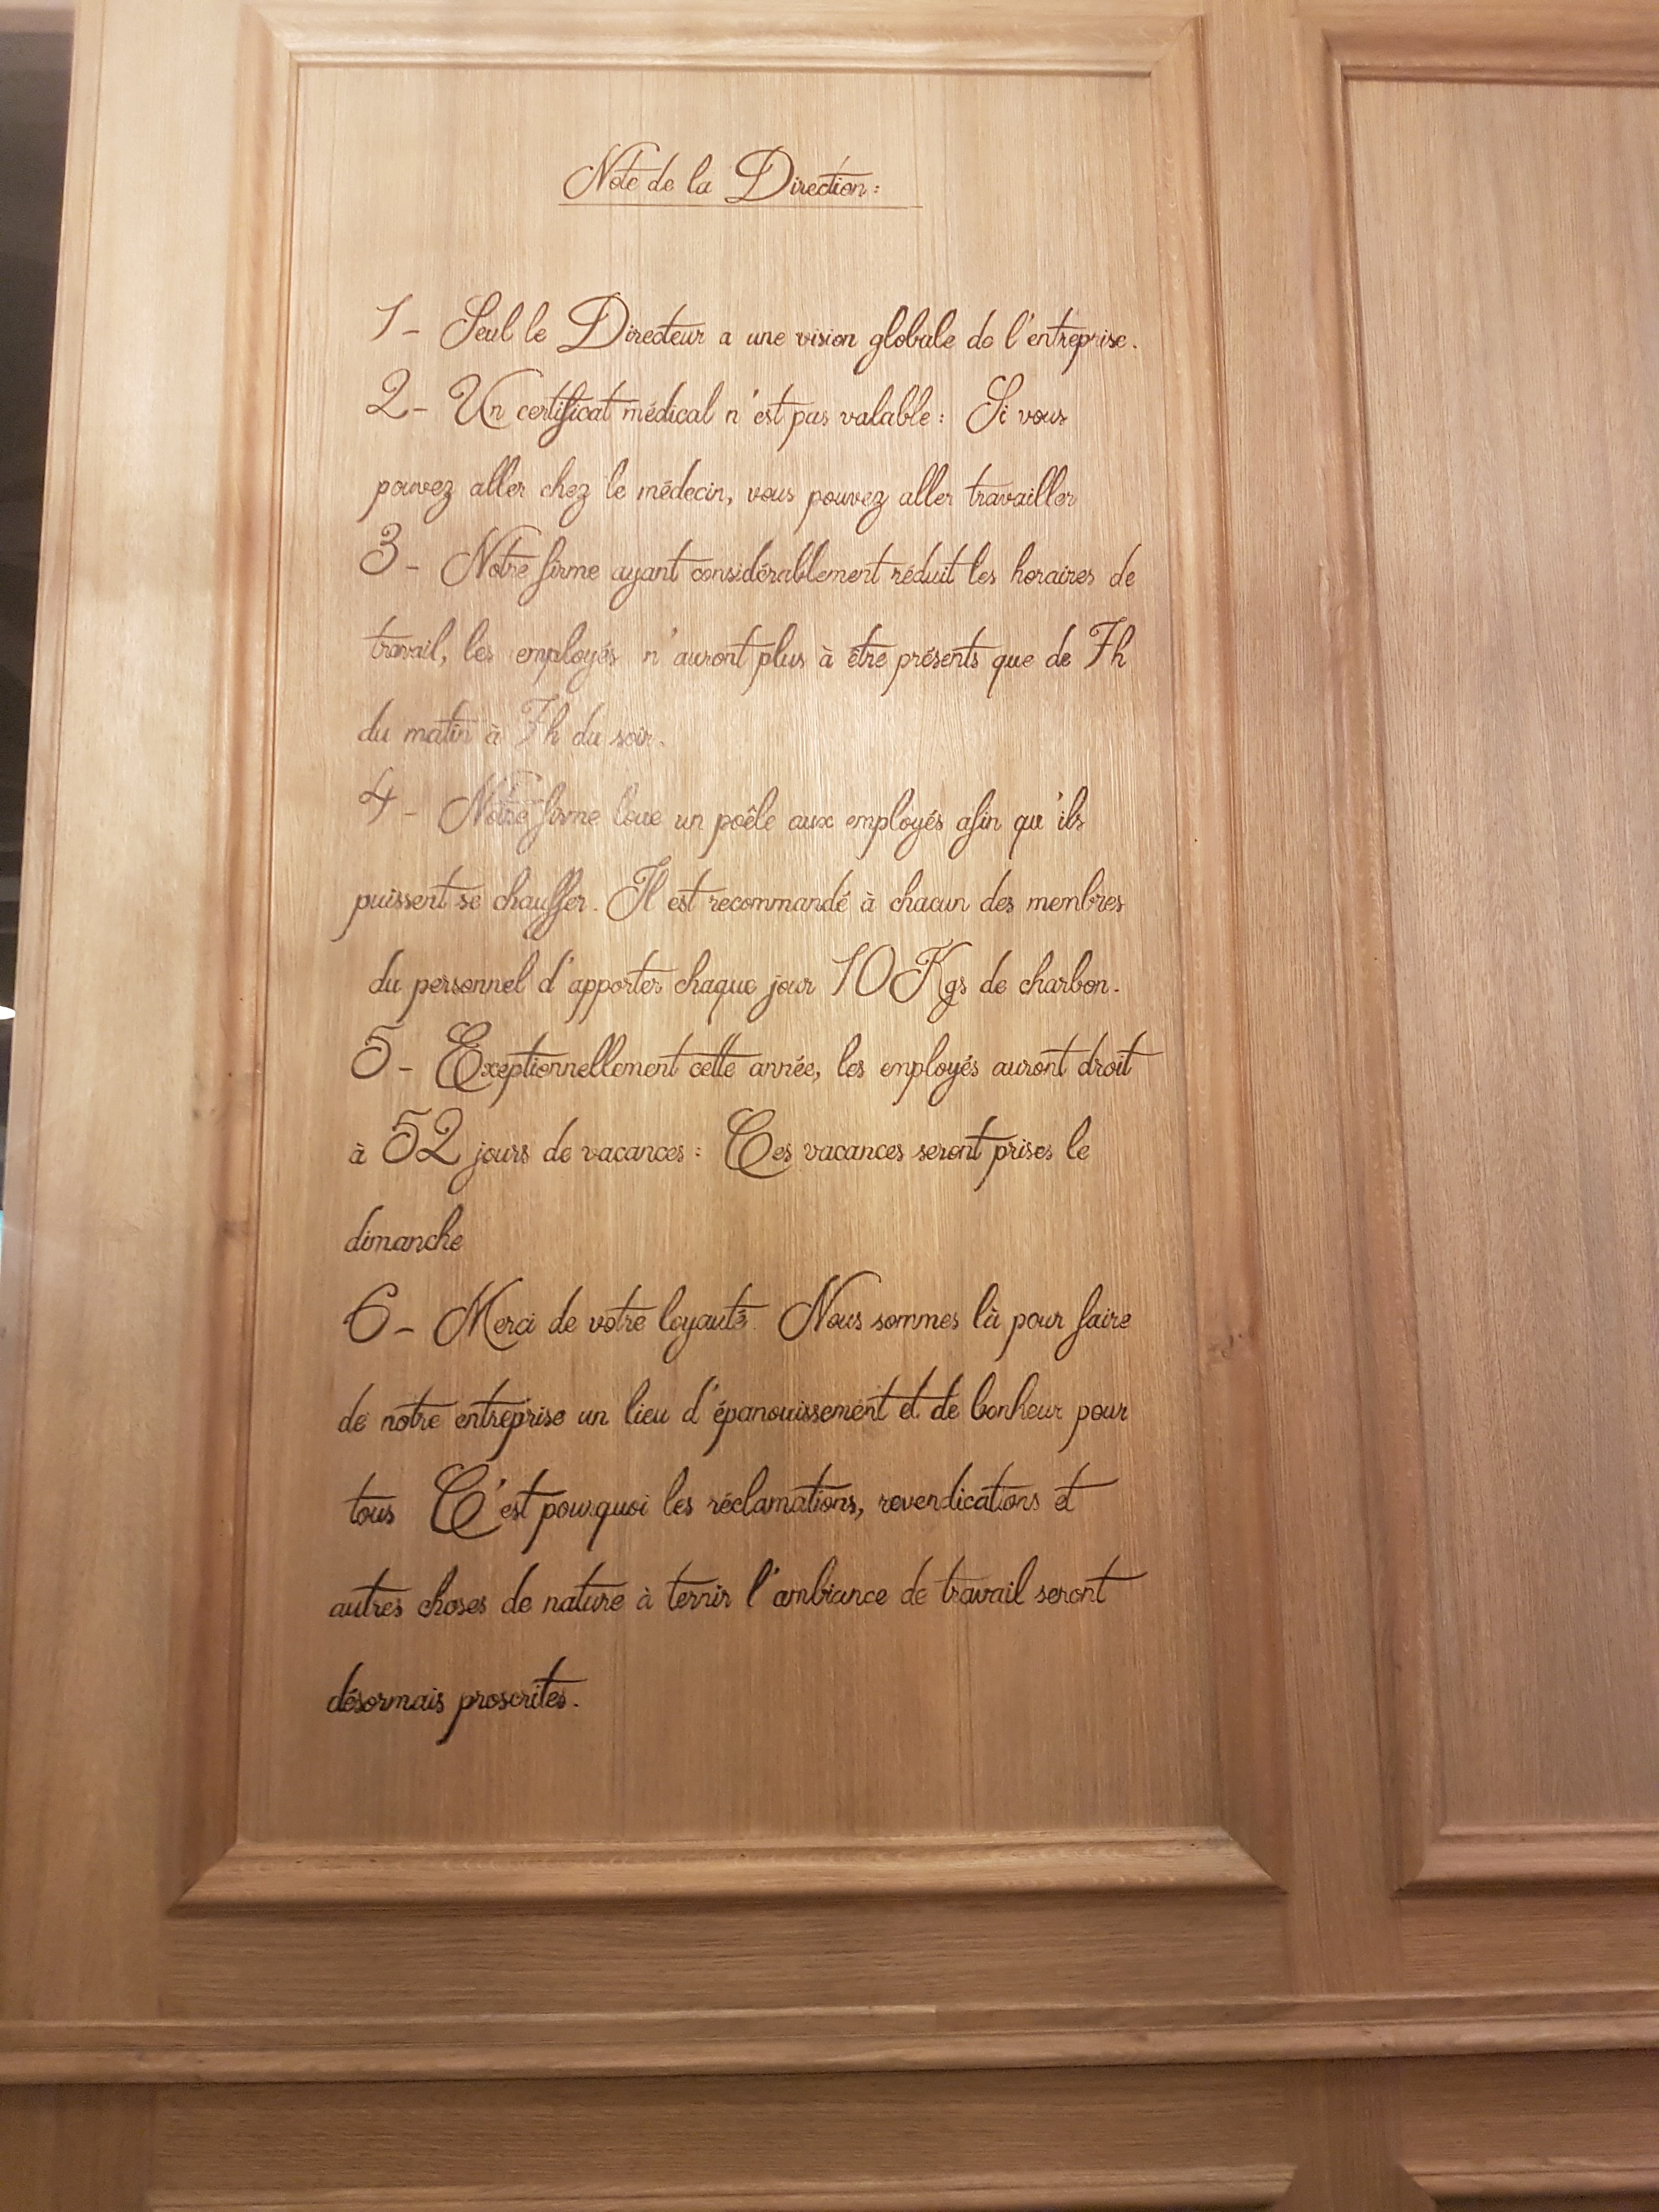 Note de la Direction :
1 - Seul le Directeur a une vision globale de l'entreprise.
2 - Un certificat médical n'est pas valable : Si vous
pouvez aller chez le médecin, vous pouvez aller travailler
3 - Notre firme ayant considérablement réduit les horaires de
travail, les employés n'auront plus à être présents que de 7h
du matin à 7h du soir.
4 - Notre firme loue un poêle aux employés afin qu'ils
puissent se chauffer. Il est recommandé à chacun des membres
du personnel d'apporter chaque jour 10 Kgs de charbon.
5 - Exeptionnellement cette année, les employés auront droit
à 52 jours de vacances : Ces vacances seront prises le
dimanche
6 - Merci de votre loyauté. Nous sommes là pour faire
de notre entreprise un lieu d'épanouissement et de bonheur pour
tous C'est pourquoi les réclamations, revendications et
autres choses de nature à ternir l'ambiance de travail seront
désormais proscrites.